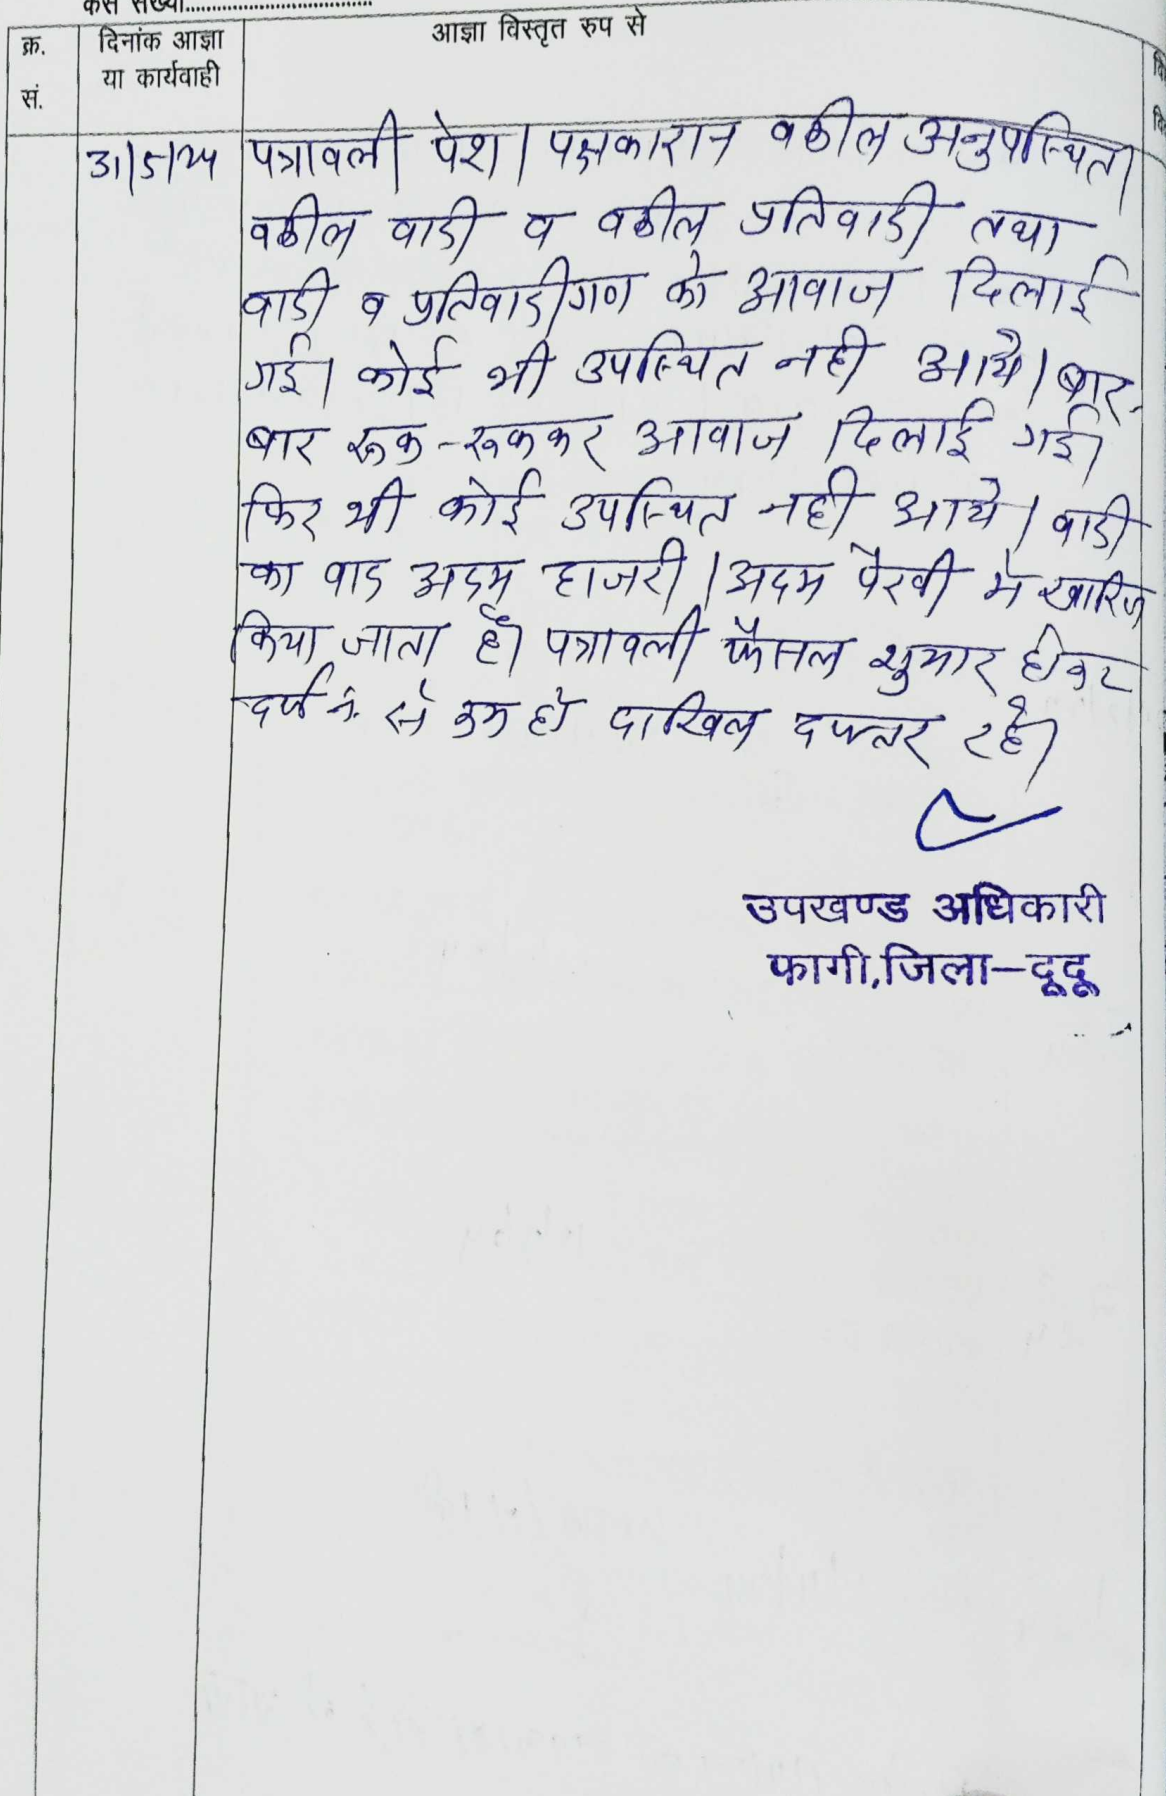 केस संख्या
क्र. सं.
दिनांक आज्ञा या कार्यवाही
आज्ञा विस्तृत रुप से
31/5/24
पत्रावली पेश। पक्षकारान वकील अनुपस्थित।
वकील वादी व वकील प्रतिवादी तथा
वादी व प्रतिवादीगण को आवाज दिलाई
गई। कोई भी उपस्थित नही आये। बार-
बार रूक-रूककर आवाज दिलाई गई।
फिर भी कोई उपस्थित नही आये। वादी
का वाद अदम हाजरी/अदम पैरवी मे खारिज
किया जाता है। पत्रावली फैसल शुमार होकर
दर्ज नं. से कम हो दाखिल दफ्तर रहे।
उपखण्ड अधिकारी
फागी,जिला-दूदू